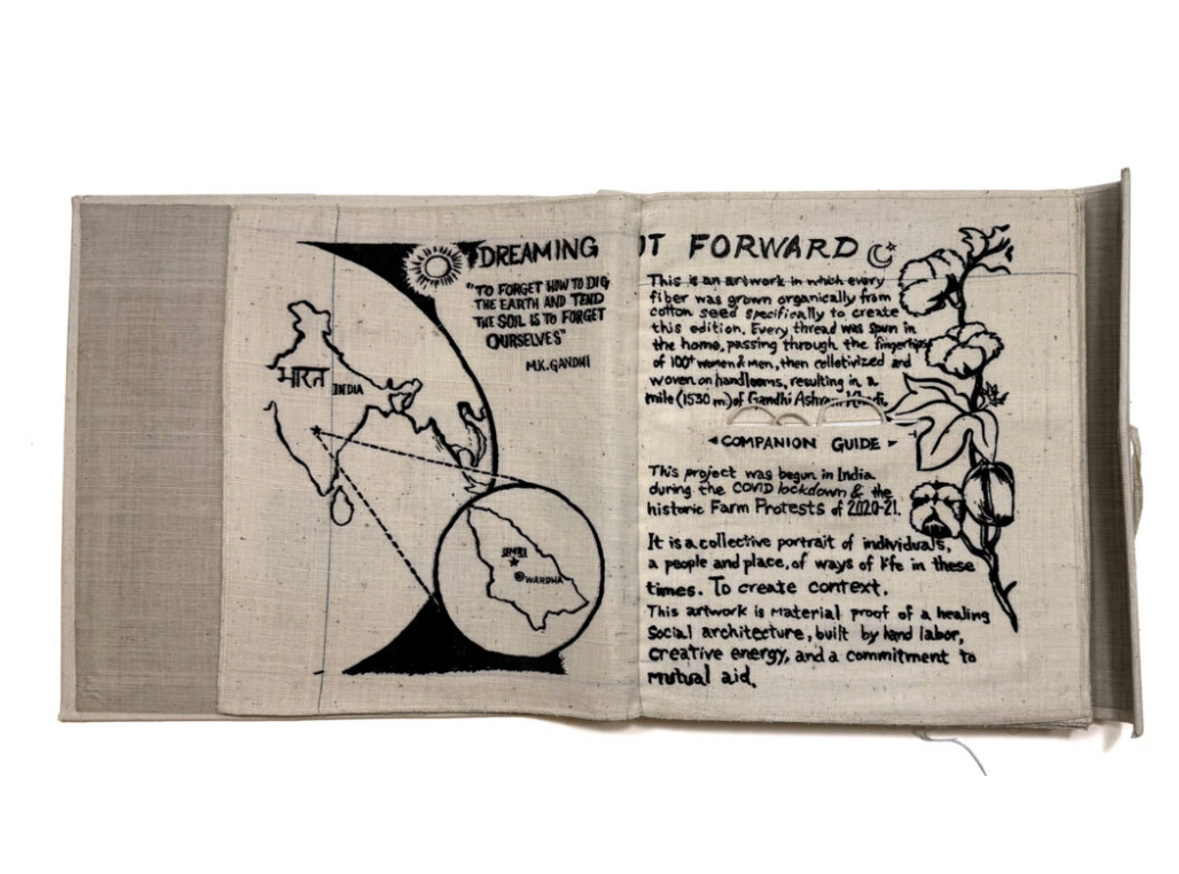 DREAMING
"TO FORGET HOW TO DIG
THE EARTH AND TEND
THE SOIL IS TO FORGET
OURSELVES"
M.K. GANDHI
भारत
INDIA
WARDHA
FORWARD
This is an artwork in which every
fiber was grown organically from
cotton seed specifically to create
this edition. Every thread was spun in
the home, passing through the fingertips
of 100+ women & men, then colletivized and
woven on handlooms, resulting in a
mile (1530 m) of Gandhi Ashram Khadi.
COMPANION GUIDE
This project was begun in India
during the COVID lockdown & the
historic Farm Protests of 2020-21.
It is a collective portrait of individuals,
a people and place, of ways of life in these
times. To create context.
This artwork is material proof of a healing
social architecture, built by hand labor,
creative energy, and a commitment to
mutual aid.